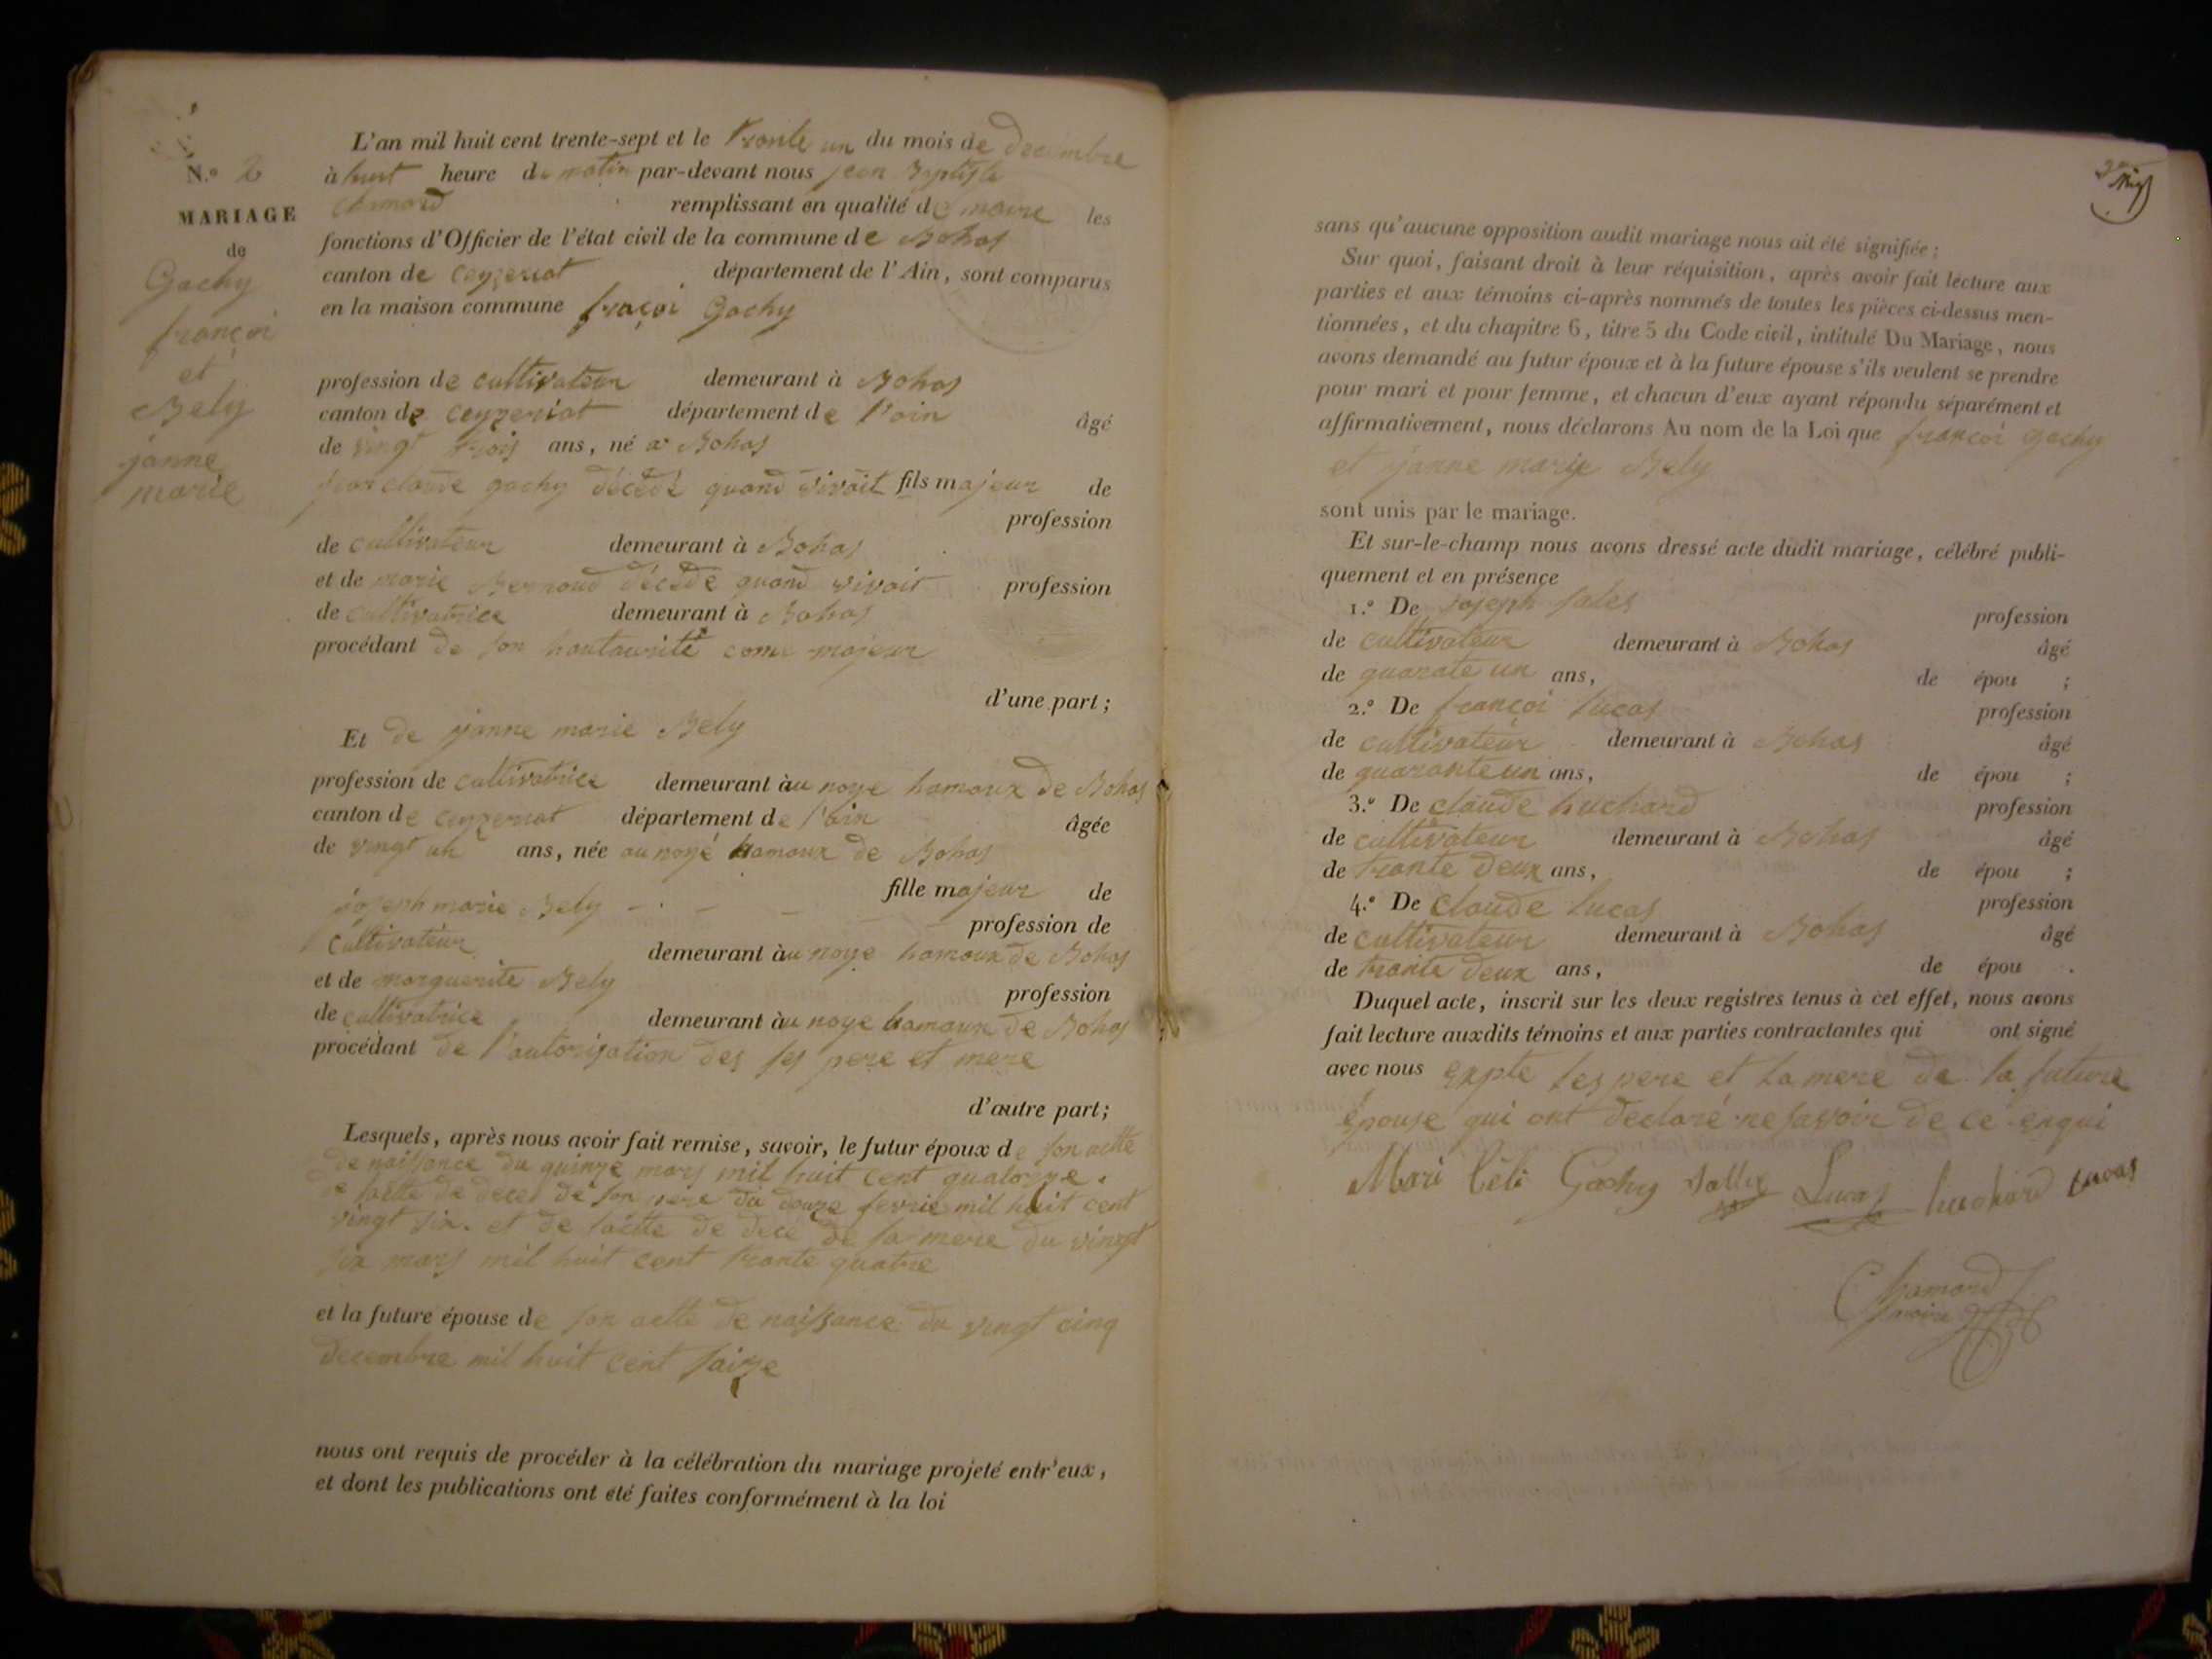 N.o 2
MARIAGE
de
Gachy
françoi
et
Bely
janne
marie
L'an mil huit cent trente-sept et le tronte un du mois de decembre
à huit heure du matin par-devant nous jean Bptiste
Chamard remplissant en qualité de maire les
fonctions d'Officier de l'état civil de la commune de Bohas
canton de ceyzeriat département de l'Ain, sont comparus
en la maison commune fraçoi Gachy
profession de cultivateur demeurant à Bohas
canton de ceyzeriat département de l'ain âgé
de vingt trois ans, né a Bohas
claude gachy décédé quand vivait fils majeur de
profession
de cultivateur demeurant à Bohas
et de marie Bernoud décédé quand vivait profession
de cultivatrice demeurant à Bohas
procédant de son hautaurité come majeur
d'une part;
Et de janne marie Bely
profession de cultivatrice demeurant àu noye hamaux de Bohas
canton de ceyzeriat département de l'ain âgée
de vingt un ans, née au noyé hamaux de Bohas
fille majeur de
joseph marie Bely profession de
cultivateur demeurant àu noye hamaux de Bohas
et de marguerite Bely profession
de cultivatrice demeurant àu noye hamaux de Bohas
procédant de l'autorisation des ses pere et mere
d'autre part;
Lesquels, après nous avoir fait remise, savoir, le futur époux de son actte
de naissance du quinze mars mil huit cent quatorze.
de lactte de deces de son pere du douze fevrie mil huit cent
vingt six. et de lactte de decé de sa mere du vingt
six mars mil huit cent tronte quatre
et la future épouse de son actte de naissance du vingt cinq
decembre mil huit cent saize
nous ont requis de procéder à la célébration du mariage projeté entr'eux,
et dont les publications ont été faites conformément à la loi
sans qu'aucune opposition audit mariage nous ait été signifiée;
Sur quoi, faisant droit à leur réquisition, après avoir fait lecture aux
parties et aux témoins ci-après nommés de toutes les pièces ci-dessus men-
tionnées, et du chapitre 6, titre 5 du Code civil, intitulé Du Mariage, nous
avons demandé au futur époux et à la future épouse s'ils veulent se prendre
pour mari et pour femme, et chacun d'eux ayant répondu séparément et
affirmativement, nous déclarons Au nom de la Loi que françoi gachy
et janne marie Bely
sont unis par le mariage.
Et sur-le-champ nous avons dressé acte dudit mariage, célébré publi-
quement et en présence
1.o De joseph sales profession
de cultivateur demeurant à Bohas âgé
de quarate un ans, de épou ;
2.o De françoi lucas profession
de cultivateur demeurant à Bohas âgé
de quarante un ans, de épou ;
3.o De claude huchard profession
de cultivateur demeurant à Bohas âgé
de tronte deux ans, de épou ;
4.o De claude lucas profession
de cultivateur demeurant à Bohas âgé
de tronte deux ans, de épou .
Duquel acte, inscrit sur les deux registres tenus à cet effet, nous avons
fait lecture auxdits témoins et aux parties contractantes qui ont signé
avec nous expte les pere et la mere de la future
épouse qui ont declaré ne savoir de ce enqui
Mari Béli Gachy Lucas huchard Lucas
Chamard
maire